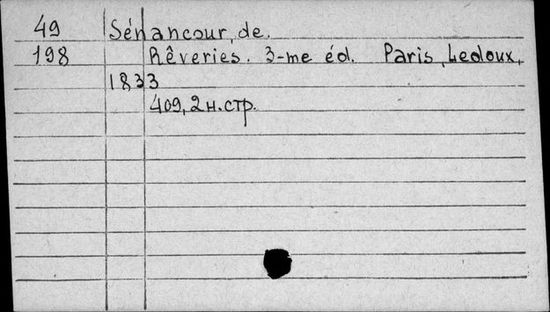 49 Sénancour, de.
198 Rêveries. 3-me éd. Paris, Ledoux,
1833
409, 2 н. стр.